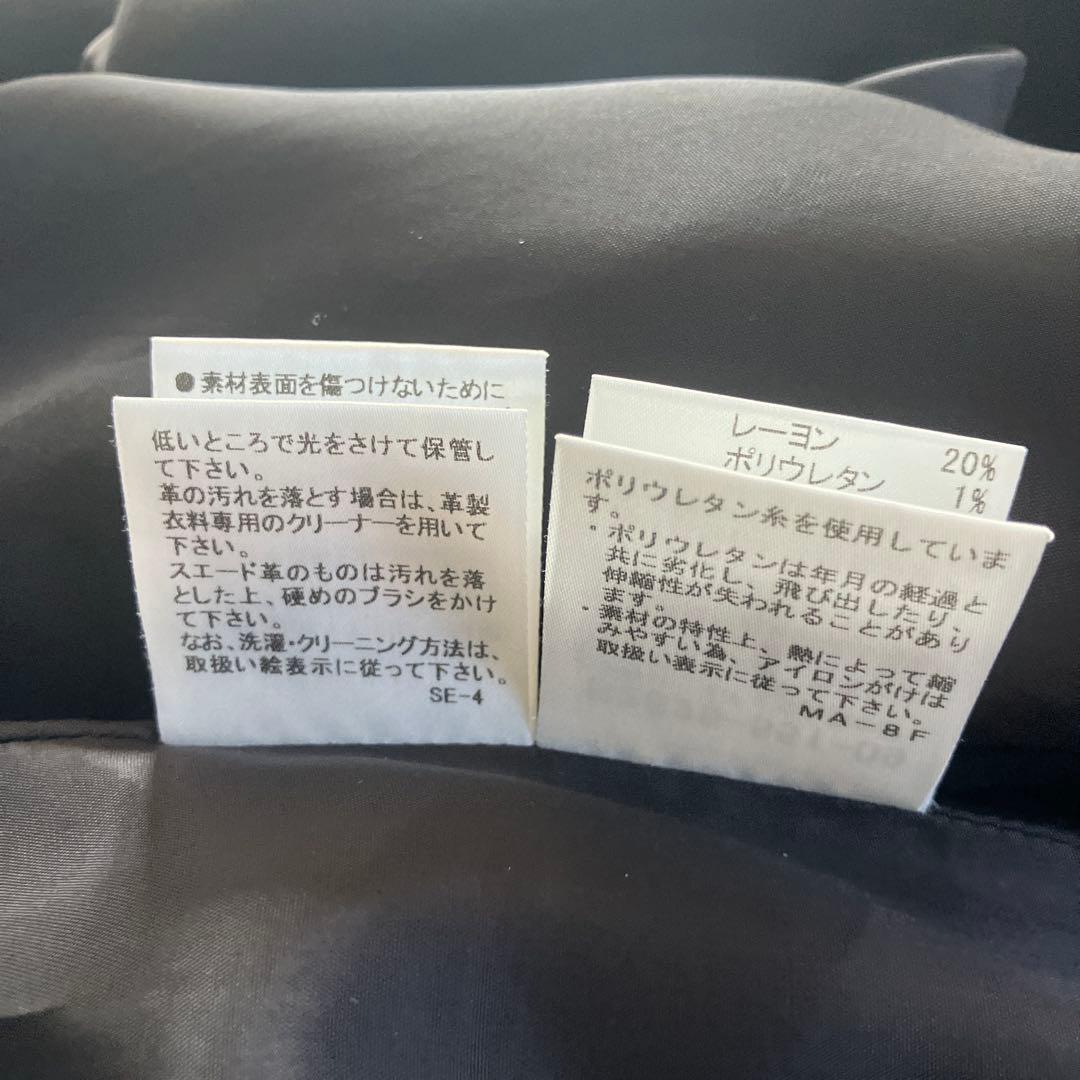 ●素材表面を傷つけないために
低いところで光をさけて保管し
て下さい。
革の汚れを落とす場合は、革製
衣料専用のクリーナーを用いて
下さい。
スエード革のものは汚れを落
とした上、硬めのブラシをかけ
て下さい。
なお、洗濯・クリーニング方法は、
取扱い絵表示に従って下さい。
SE-4
レーヨン 20%
ポリウレタン 1%
ポリウレタン糸を使用していま
す。
・ポリウレタンは年月の経過と
共に劣化し、飛び出したり、
伸縮性が失われることがあり
ます。
・素材の特性上、熱によって縮
みやすい為、アイロンがけは
取扱い表示に従って下さい。
MA-8F